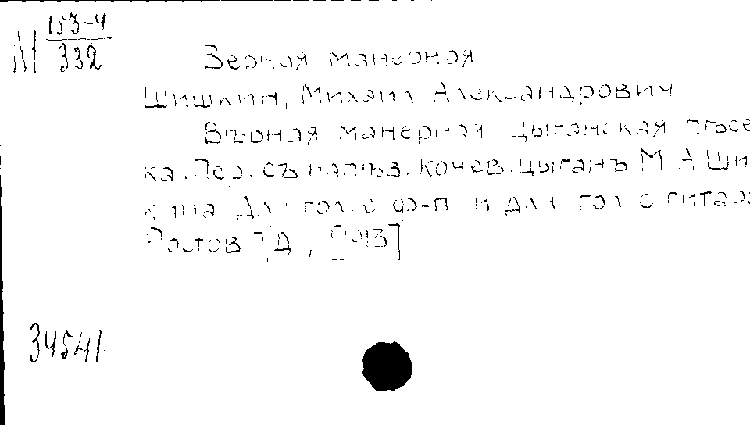 М 153-4
332
Верная манерная
Шишкин, Михаил Александрович
Вѣрная манерная цыганская пѣсе
ка. Пер. съ напѣв. кочев. цыганъ М. А. Ши
кина Для гол. с ф-п. и для гол с гитаро
Ростов Д,
34541